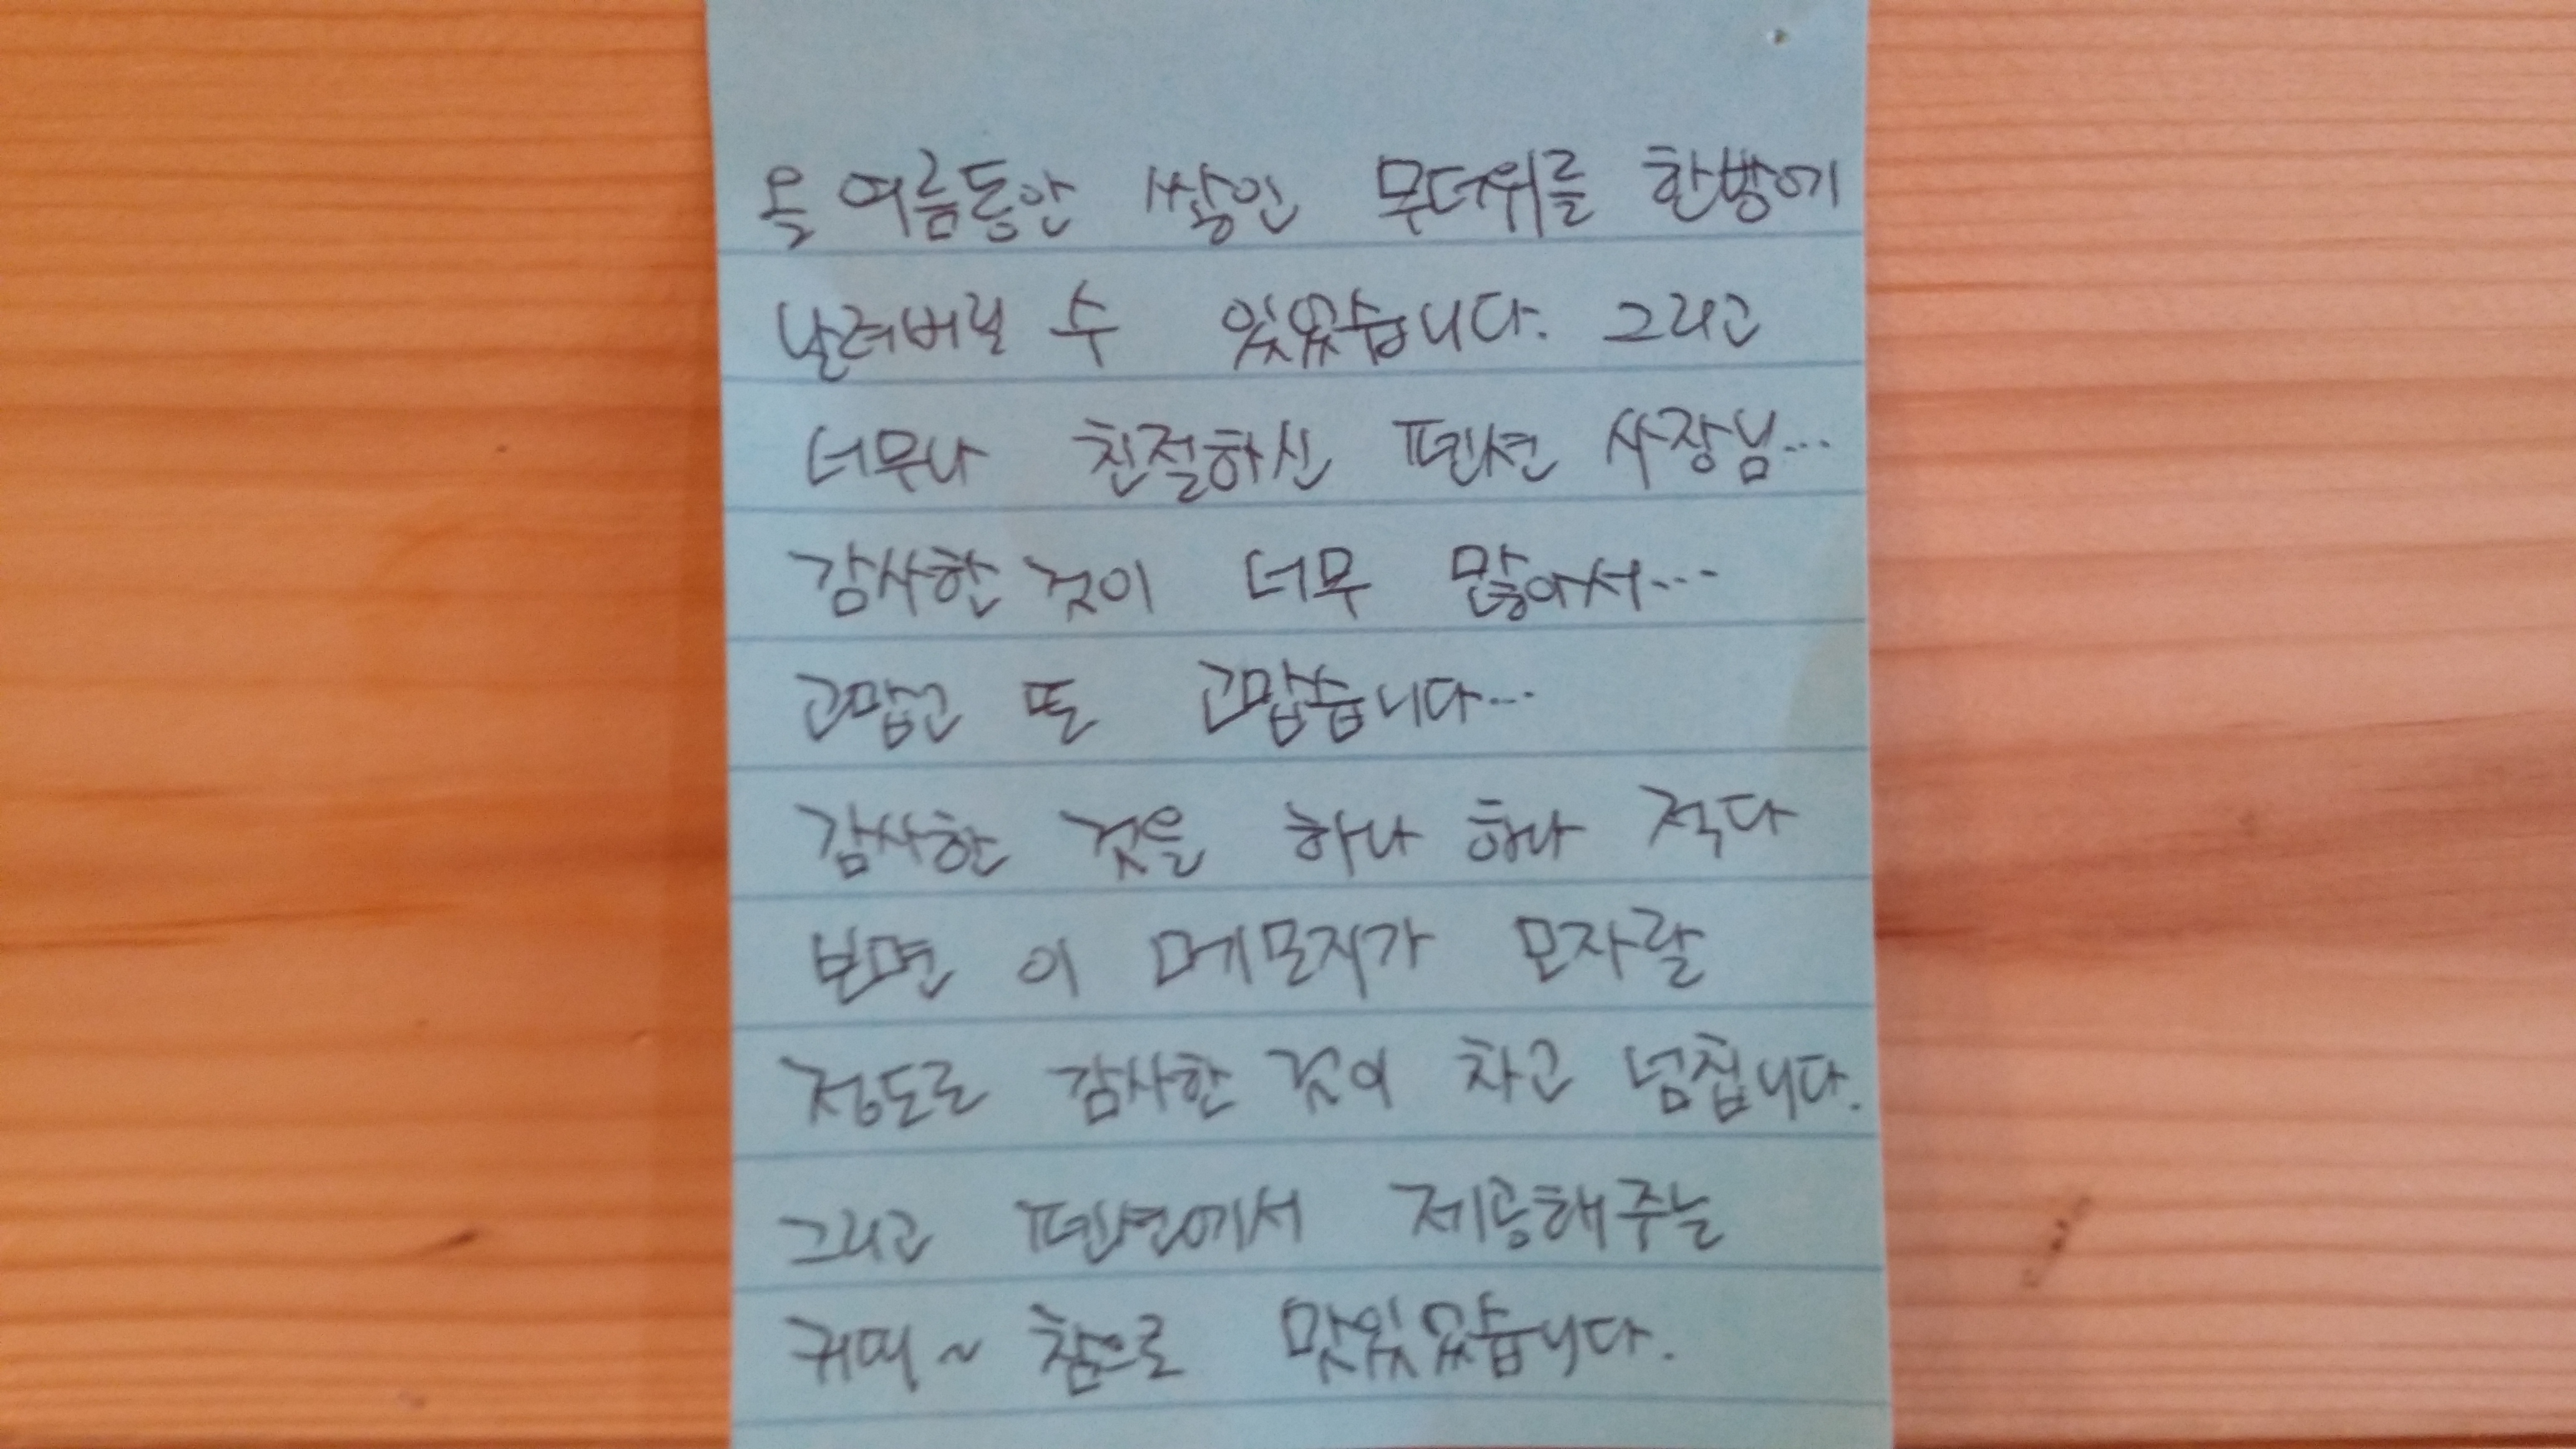 올 여름동안 쌓인 무더위를 한방에
날려버릴 수 있었습니다. 그리고
너무나 친절하신 펜션 사장님...
감사한 것이 너무 많아서...
고맙고 또 고맙습니다...
감사한 것을 하나 하나 적다
보면 이 메모지가 모자랄
정도로 감사한 것이 차고 넘칩니다.
그리고 펜션에서 제공해주는
커피~ 참으로 맛있었습니다.